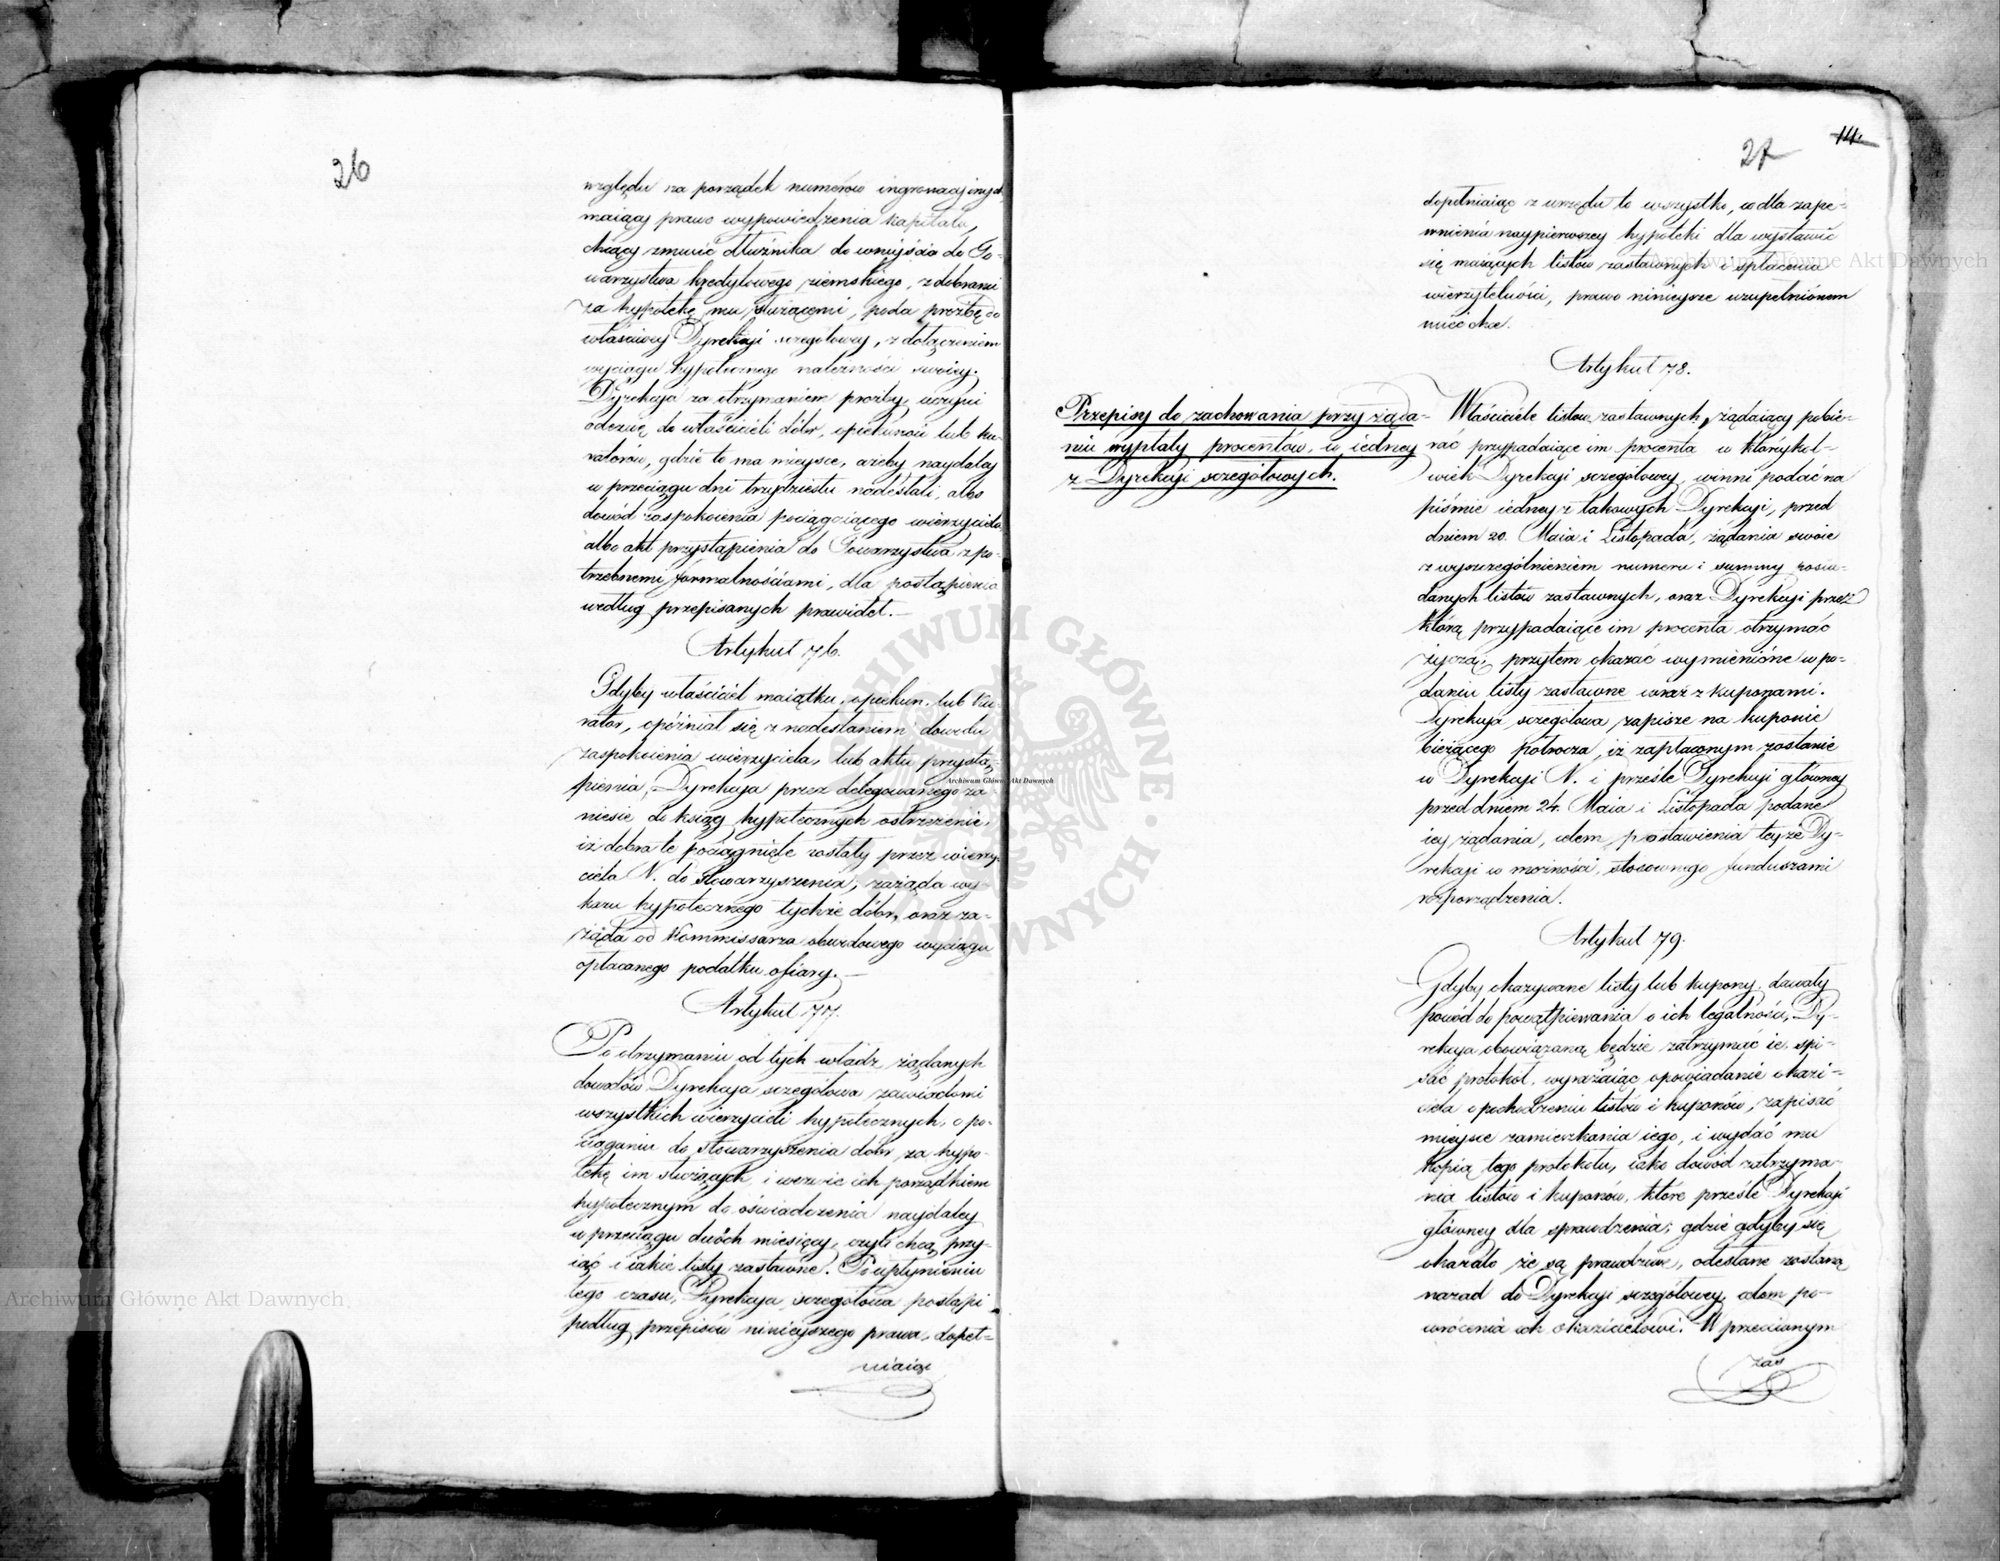 26
względu na porządek numerów ingrossacyjnych
maiący prawo wypowiedzenia kapitału,
chcący zmusić dłużnika do wniyścia do To-
warzystwa kredytowego ziemskiego, z dobrami
za hypotekę mu służącemi, poda prożbę do
właściwey Dyrekcyi szczegółowey, z dołączeniem
wyciągu hypotecznego należności swoiey.
Dyrekcya za otrzymaniem prożby, uczyni
odezwę do właścicieli dóbr, opiekunów lub ku-
ratorów, gdzie to ma mieysce, ażeby naydaley
w przeciągu dni trzydziestu nadesłali, albo
dowód zaspokoienia pociągaiącego wierzyciela,
albo akt przystąpienia do Towarzystwa z po-
trzebnemi formalnościami, dla postąpienia
według przepisanych prawideł.
Artykuł 76.
Gdyby właściciel maiątku, opiekun, lub ku-
rator, opóźniał się z nadesłaniem dowodu
zaspokoienia wierzyciela, lub aktu przystą-
pienia, Dyrekcya przez delegowanego za-
niesie do ksiąg hypotecznych ostrzeżenie,
iż dobra te pociągnięte zostały przez wierzy-
ciela N. do stowarzyszenia, zażąda wy-
kazu hypotecznego tychże dóbr, oraz za-
żąda od Kommissarza obwodowego wyciągu
opłacanego podatku ofiary.
Artykuł 77.
Po otrzymaniu od tych władz żądanych
dowodów, Dyrekcya szczegółowa zawiadomi
wszystkich wierzycieli hypotecznych, o po-
ciąganiu do stowarzyszenia dóbr za hypo-
tekę im służących, i wezwie ich porządkiem
hypotecznym do oświadczenia naydaley
w przeciągu dwóch miesięcy, czyli chcą przy-
iąć i iakie listy zastawne. Po upłynieniu
tego czasu, Dyrekcya szczegółowa postąpi
podług przepisów ninieyszego prawa, dopeł-
niaiąc
14.
27
dopełniaiąc z urzędu to wszystko, co dla zape-
wnienia naypierwszey hypoteki dla wystawić
się maiących listów zastawnych i spłacenia
wierzytelności, prawo ninieysze uzupełnionem
mieć chce.
Artykuł 78.
Przepisy do zachowania przy żąda-
niu wypłaty procentów, w iedney
z Dyrekcyi szczegółowych.
Właściciele listów zastawnych, żądaiący pobie-
rać przypadaiące im procenta w którykol-
wiek Dyrekcyi szczegółowey, winni podać na
piśmie iedney z takowych Dyrekcyi, przed
dniem 20. Maia i Listopada, żądania swoie
z wyszczególnieniem numeru i summy posia-
danych listów zastawnych, oraz Dyrekcyi przez
którą przypadaiące im procenta otrzymać
życzą; przytem okazać wymienione w po-
daniu listy zastawne wraz z kuponami.
Dyrekcya szczegółowa zapisze na kuponie
bieżącego półrocza, iż zapłaconym zostanie
w Dyrekcyi N. i prześle Dyrekcyi główney
przed dniem 24. Maia i Listopada podane
iey żądania, celem postawienia teyże Dy-
rekcyi w możności stosownego funduszami
rozporządzenia.
Artykuł 79.
Gdyby okazywane listy lub kupony, dawały
powód do powątpiewania o ich legalności, Dy-
rekcya obowiązaną będzie zatrzymać ie, spi-
sać protokół, wyrażaiąc opowiadanie okazi-
ciela o pochodzeniu listów i kuponów, zapisać
mieysce zamieszkania iego, i wydać mu
kopią tego protokołu, iako dowód zatrzyma-
nia listów i kuponów, które prześle Dyrekcyi
główney dla sprawdzenia; gdzie gdyby się
okazało że są prawdziwe, odesłane zostaną
nazad do Dyrekcyi szczegółowey, celem po-
wrócenia ich okazicielowi. W przeciwnym
zaś
Archiwum Główne Akt Dawnych
Archiwum Główne Akt Dawnych
Archiwum Główne Akt Dawnych
ARCHIWUM GŁÓWNE AKT DAWNYCH